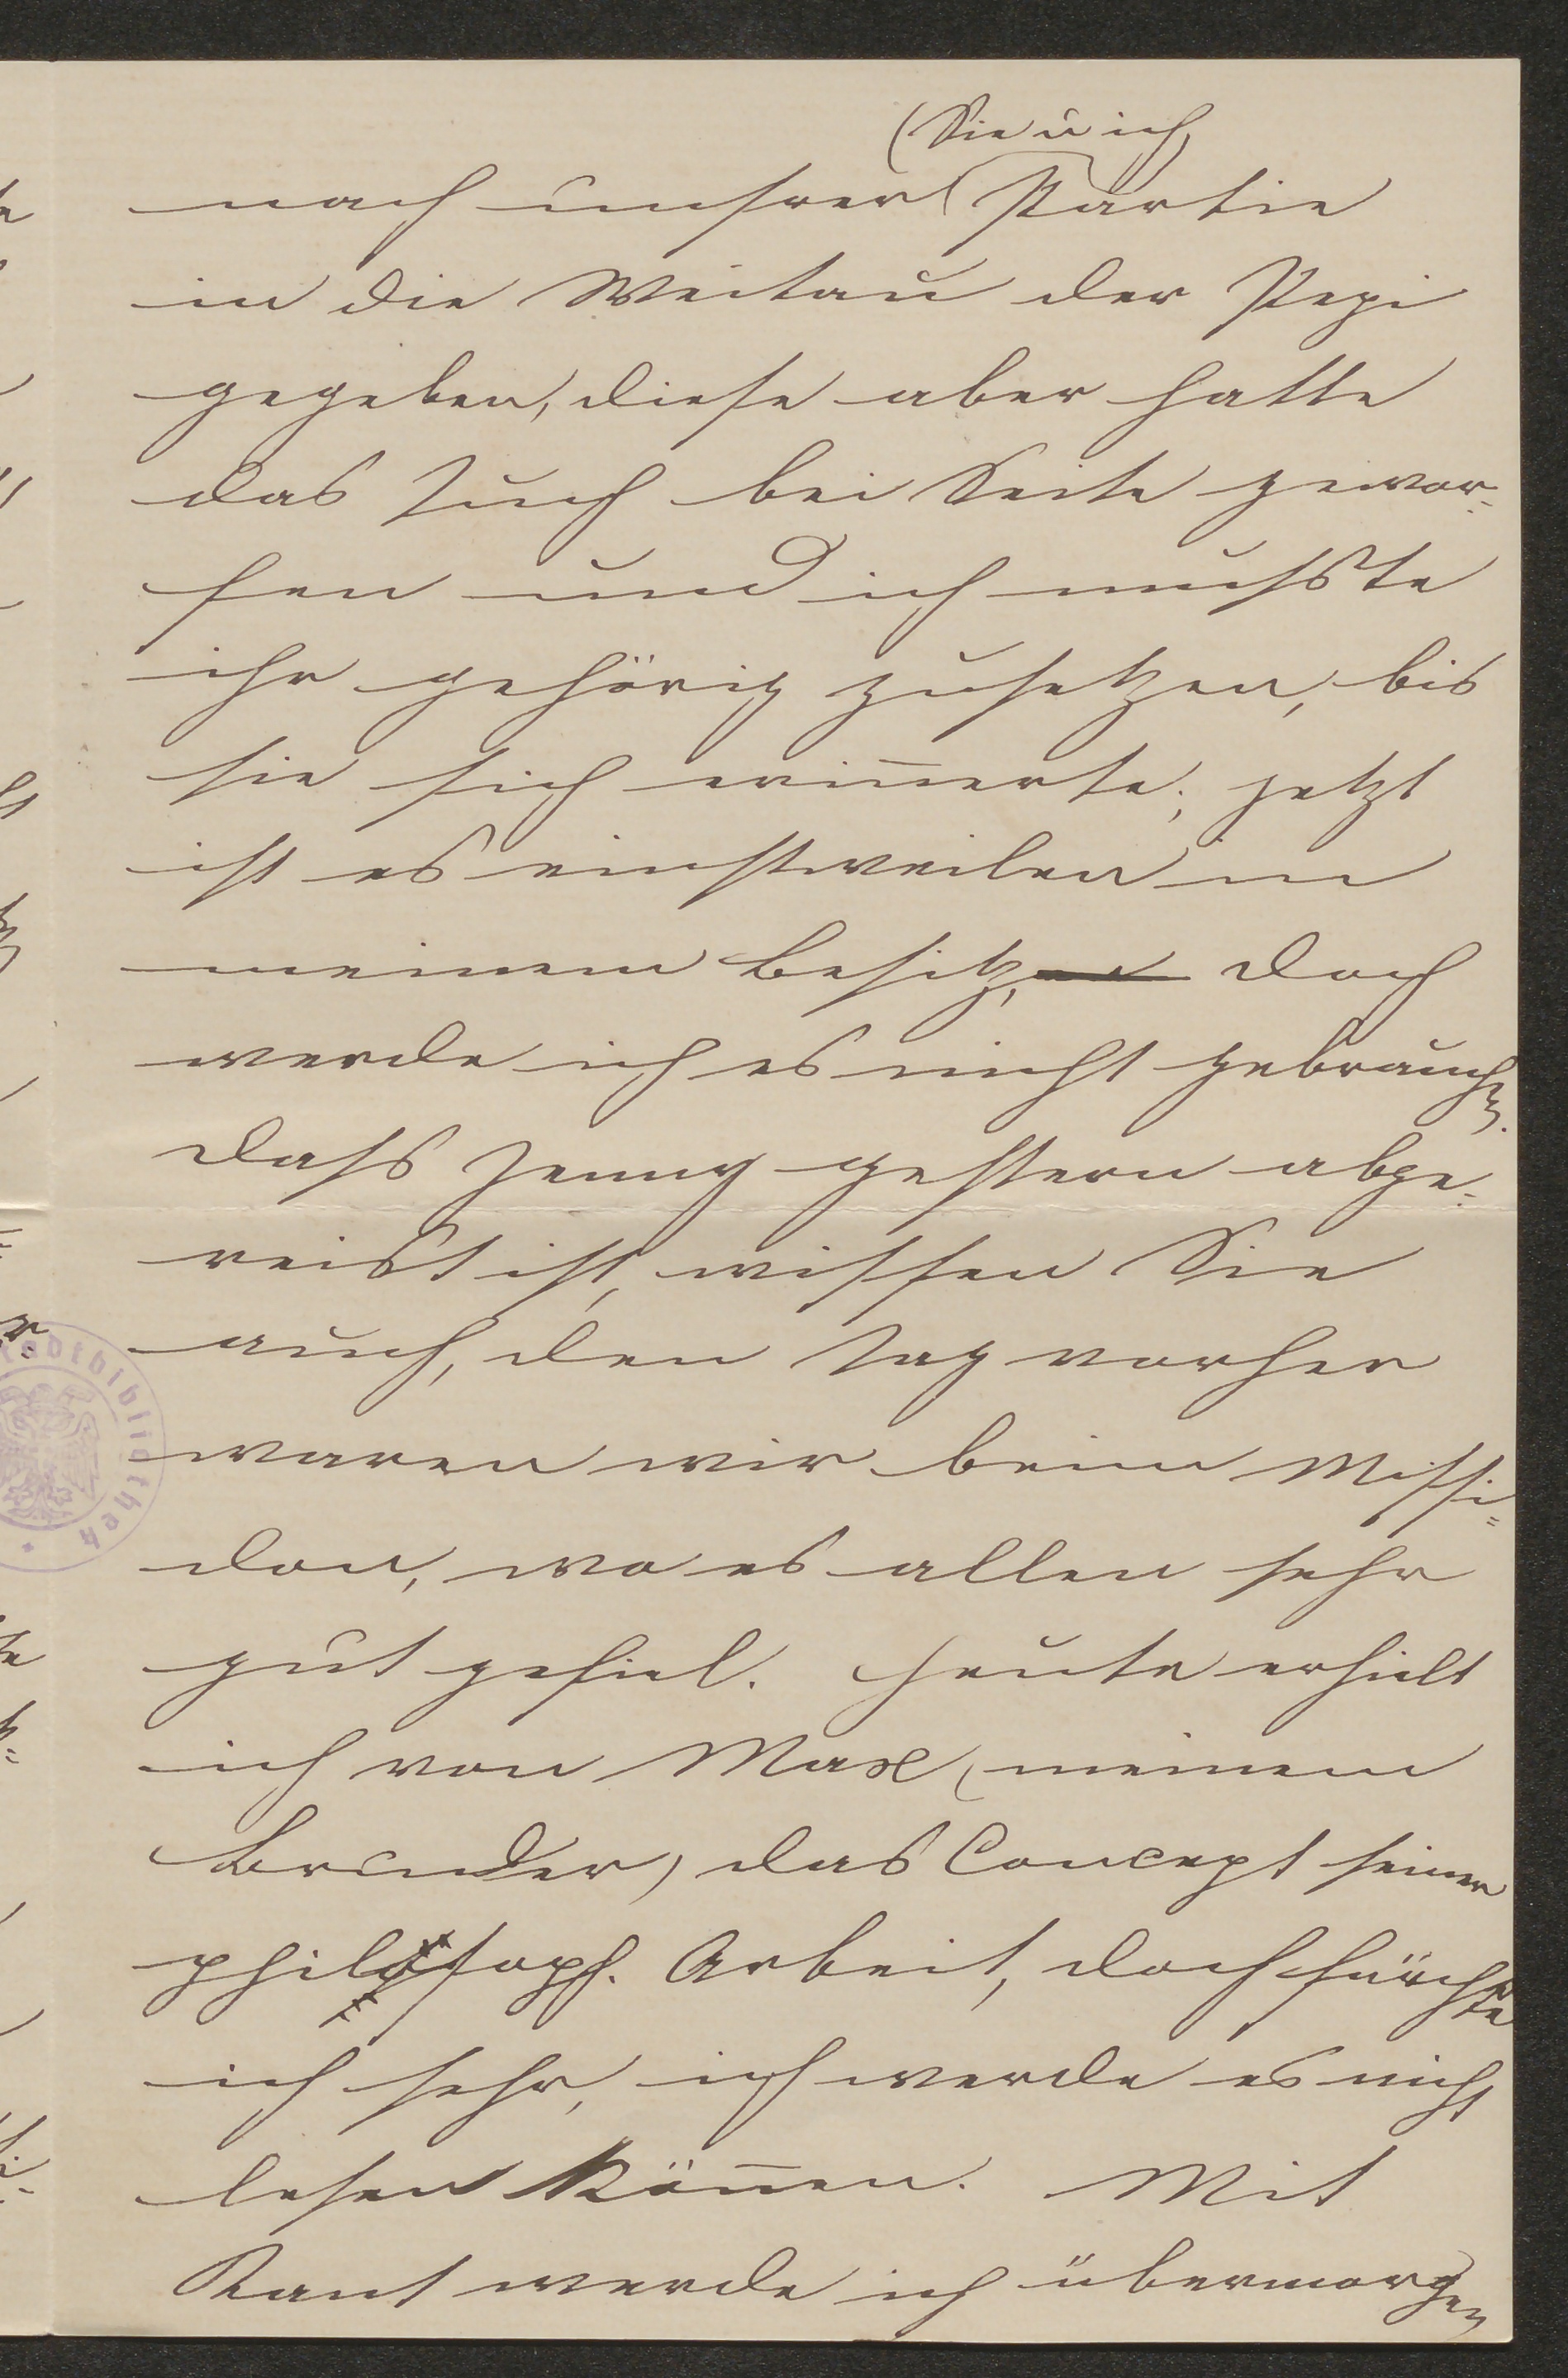 (Sie u ich)
nach unsrer Partie
in die Weitau der Pepi
gegeben, diese aber hatte
das Tuch bei Seite gewor-
fen und ich musste
ihr gehörig zusetzen, bis
sie sich erin̄erte; jetzt
ist es einstweilen in
meinem Besitz, doch
werde ich es nicht gebrauchen.
Dass Jenny gestern abge-
reist ist, wissen Sie
auch, den Tag vorher
waren wir beim
don, wo es allen sehr
gut gefiel. Heute erhielt
ich von Max (meinem
Bruder) das Concept seiner
philosoph. Arbeit, doch fürchte
ich sehr, ich werde es nicht
lesen kön̄en. Mit
Kant werde ich übermorgen
Stadtbibliothek